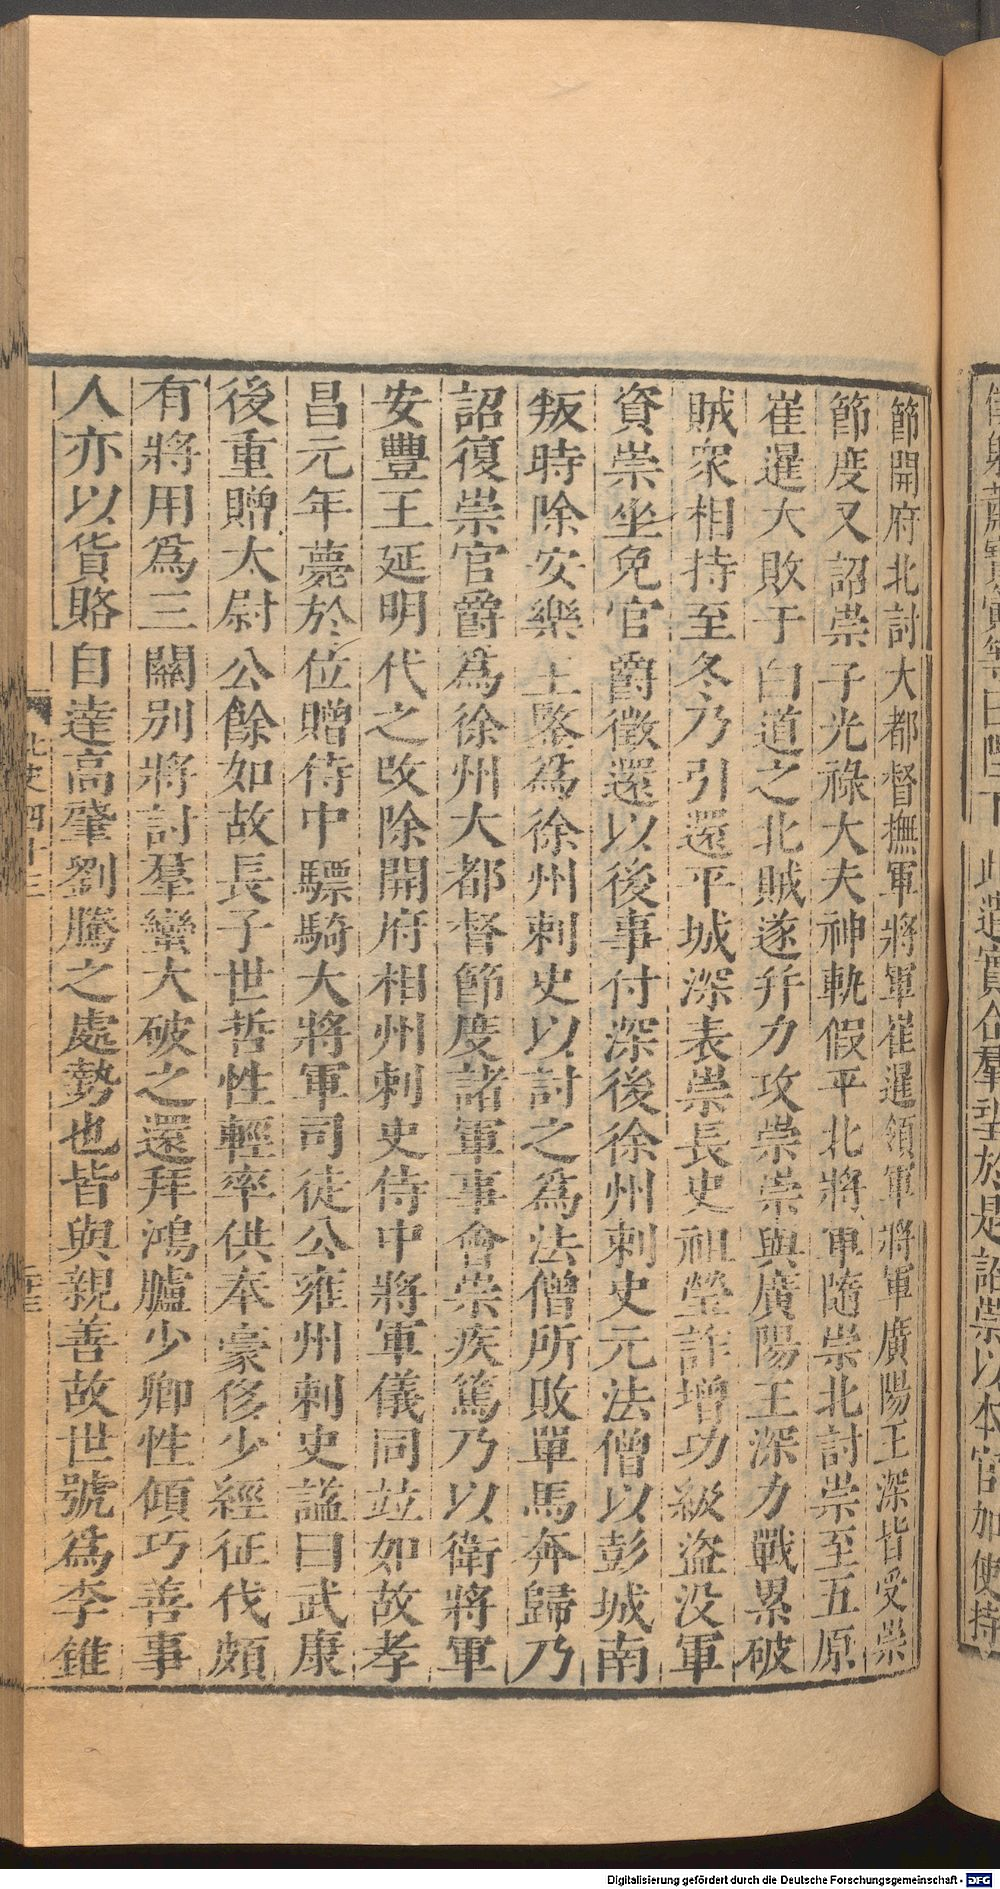 節開府北討大都督撫軍將軍崔暹領軍將軍廣陽王深皆受崇
節度又詔崇子光祿大夫神軌假平北將軍隨崇北討崇至五原
崔暹大敗于白道之北賊遂幷力攻崇崇與廣陽王深力戰累破
賊衆相持至冬乃引還平城深表崇長史祖瑩詐增功級盜没軍
資崇坐免官爵徵還以後事付深後徐州刺史元法僧以彭城南
叛時除安樂王鑒爲徐州刺史以討之爲法僧所敗單馬奔歸乃
詔復崇官爵爲徐州大都督節度諸軍事會崇疾篤乃以衛將軍
安豐王延明代之改除開府相州刺史侍中將軍儀同竝如故孝
昌元年薨於位贈侍中驃騎大將軍司徒公雍州刺史謚曰武康
後重贈太尉公餘如故長子世哲性輕率供奉豪侈少經征伐頗
有將用爲三關別將討羣蠻大破之還拜鴻臚少卿性傾巧善事
人亦以貨賂自達高肇劉騰之處勢也皆與親善故世號爲李錐
北史四十三
Digitalisierung gefördert durch die Deutsche Forschungsgemeinschaft - DFG